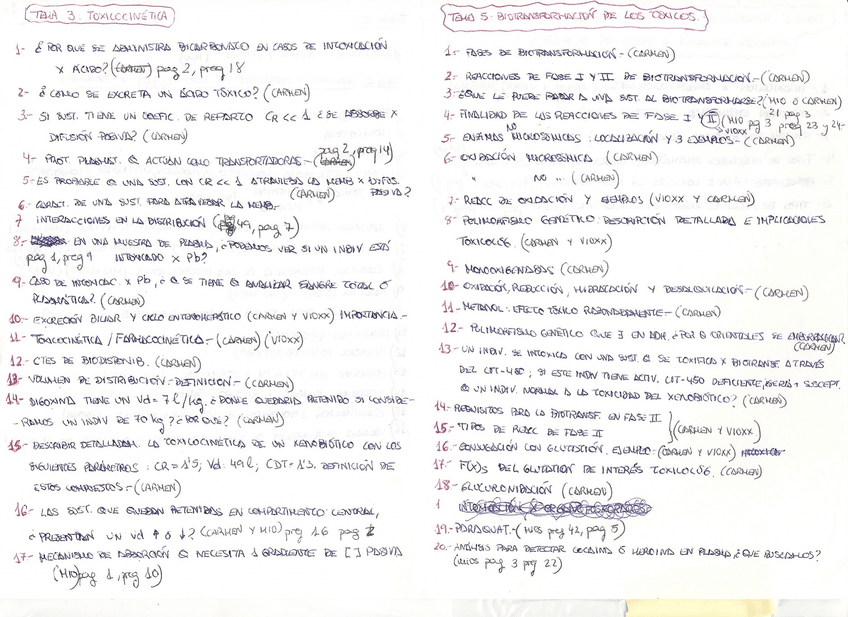 TEMA 3. TOXICOCINÉTICA
1- ¿POR QUE SE ADMINISTRA BICARBONATO EN CASOS DE INTOXICACIÓN
X ÁCIDO? (CARMEN) pag 2, preg 18
2- ¿CÓMO SE EXCRETA UN ÁCIDO TÓXICO? (CARMEN)
3- SI SUST. TIENE UN COEFIC. DE REPARTO CR << 1 ¿SE ABSORBE X
DIFUSIÓN PASIVA? (CARMEN)
pag 2, preg 14)
4- PROT. PLASMÁT. Q ACTÚAN COMO TRANSPORTADORAS- (CARMEN)
5- ES PROBABLE Q UNA SUST. CON CR << 1 ATRAVIESA LA MEMB X DIFUS.
(CARMEN) PASIVA?
6- CARACT. DE UNA SUST. PARA ATRAVESAR LA MEMB.-
7 INTERACCIONES EN LA DISTRIBUCIÓN (49, pag 7)
8- EN UNA MUESTRA DE PLASMA, ¿PODEMOS VER SI UN INDIV ESTÁ
pag 1, preg 9 INTOXICADO X Pb?
9- CASO DE INTOXICAC. X Pb, ¿Q SE TIENE Q ANALIZAR SANGRE TOTAL Ó
PLASMÁTICA? (CARMEN)
10- EXCRECIÓN BILIAR Y CICLO ENTEROHEPÁTICO (CARMEN Y VIOXX) IMPORTANCIA-
11- TOXICOCINÉTICA / FARMACOCINÉTICA- (CARMEN) (VIOXX)
12- CTES DE BIODISPONIB. (CARMEN)
13- VOLUMEN DE DISTRIBUCIÓN- DEFINICIÓN- (CARMEN)
14- DIGOXINA TIENE UN Vd = 7 l/kg. ¿DONDE QUEDARIA RETENIDO SI CONSIDE-
-RAMOS UN INDIV DE 70 kg? ¿POR QUE? (CARMEN)
15- DESCRIBIR DETALLADAM. LA TOXICOCINÉTICA DE UN XENOBIÓTICO CON LOS
SIGUIENTES PARÁMETROS: CR = 1'5; Vd: 49 l; CDT = 1'3. DEFINICIÓN DE
ESTOS COMPUESTOS- (CARMEN)
16- LAS SUST. QUE QUEDAN RETENIDAS EN COMPARTIMENTO CENTRAL,
¿PRESENTAN UN Vd ↑ ó ↓? (CARMEN Y MIO) preg 16 pag 2
17- MECANISMO DE ABSORCIÓN Q NECESITA 1 GRADIENTE DE [ ] PASIVA
(MIO) pag 1, preg 10)
TEMA 5- BIOTRANSFORMACIÓN DE LOS TÓXICOS.
1- FASES DE BIOTRANSFORMACIÓN- (CARMEN)
2- REACCIONES DE FASE I Y II DE BIOTRANSFORMACIÓN- (CARMEN)
3- ¿QUE LE PUEDE PASAR A UNA SUST. AL BIOTRANSFORMARSE? (MIO Ó CARMEN)
21 pag 3
4- FINALIDAD DE LAS REACCIONES DE FASE I Y II (MIO pg 3 preg 23 y 24-
VIOXX
5- ENZIMAS NO MICROSÓMICAS: LOCALIZACIÓN Y 3 EJEMPLOS- (CARMEN)
6- OXIDACIÓN MICROSÓMICA (CARMEN)
" NO " (CARMEN)
7- REACC DE OXIDACIÓN Y EJEMPLOS (VIOXX Y CARMEN)
8- POLIMORFISMO GENÉTICO: DESCRIPCIÓN DETALLADA E IMPLICACIONES
TOXICOLÓG. (CARMEN Y VIOXX)
9- MONOOXIGENASAS (CARMEN)
10- OXIDACIÓN, REDUCCIÓN, HIDROXILACIÓN Y DESALQUILACIÓN- (CARMEN)
11- METANOL: EFECTO TÓXICO RAZONADAMENTE- (CARMEN)
12- POLIMORFISMO GENÉTICO QUE ∃ EN ADH. ¿POR Q ORIENTALES SE EMBORRACHAN?
(CARMEN)
13- UN INDIV. SE INTOXICA CON UNA SUST. Q SE TOXIFICA X BIOTRANSF. A TRAVÉS
DEL CIT-450; SI ESTE INDIV TIENE ACTIV. CIT-450 DEFICIENTE, ¿SERÁ + SUSCEPT.
Q UN INDIV. NORMAL A LA TOXICIDAD DEL XENOBIÓTICO? (CARMEN)
14- REQUISITOS PARA LA BIOTRANSF. EN FASE II
15- TIPOS DE REACC DE FASE II (CARMEN Y VIOXX)
16- CONJUGACIÓN CON GLUTATIÓN. EJEMPLO- (CARMEN Y VIOXX)
17- F(X)S DEL GLUTATION DE INTERÉS TOXICOLÓG. (CARMEN)
18- GLUCURONIDACIÓN (CARMEN)
1
19- PARAQUAT- (mios preg 42, pag 5)
20- ANÁLISIS PARA DETECTAR COCAINA Ó HEROINA EN PLASMA, ¿QUE BUSCAMOS?
(mios pag 3 preg 22)